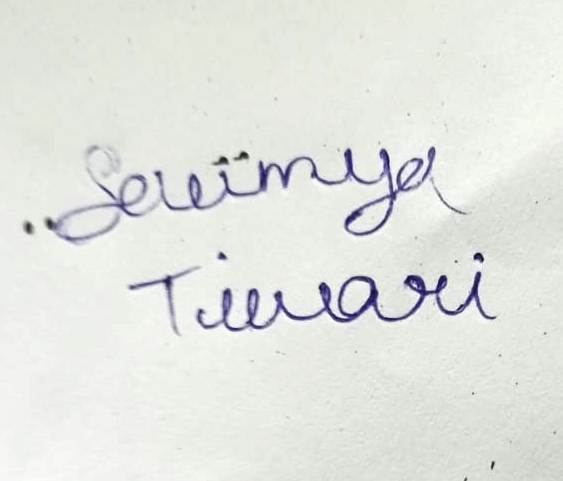 Saumya
Tiwari